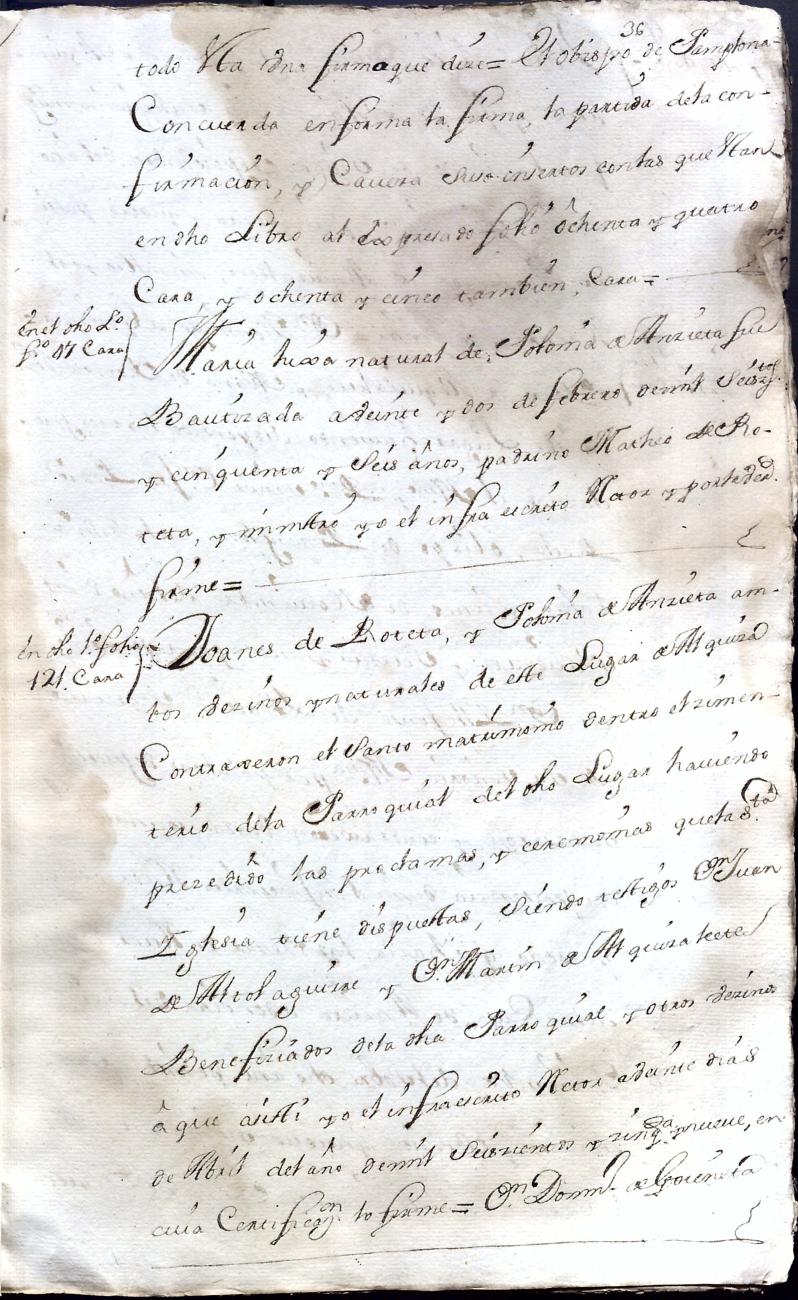 36
todo Va Una firma que dize= El obispo de Pamplona
Concuerda en forma la firma, la partida dela con-
firmación, y Cavera sus ensertos con las que Van
en dho Libro al expresado folio ôchenta y quatro
Cara, y ochenta y cinco también, Cara=
En el dho Lo
fo. 47 Cara
Maria hixa natural de, Poloma de Anzieta fue
Bautizada a veinte y dos de febrero de mil Seisztos
y cinquenta y Seis años, padrino Matheo de Ro-
teta, y ministro yo el infra escrito Retor y por verdad.
firme=
en dho lo. folio
121. Cara
Joanes de Roteta, y Poloma de Anzieta am-
bos vezinos y naturales de este Lugar de Alquiza
Contraxeron el Santo matrimonio dentro el zimen-
terio dela Parroquial del dho Lugar haviendo
prezedido las proclamas, y ceremonias que la Sta
Iglesia tiene dispuestas, Siendo testigos Dn Juan
de Altolaguirre y Dn Martin de Alquizalete
Benefiziados dela dha Parroquial y otros vezinos
â que asisti yo el infraescrito Retor a veinte dias
de Abril del año de mil Seiszientos y zinqda y nueve, en
cuia Certificazon lo firme= Dn Domin. de Goieneta